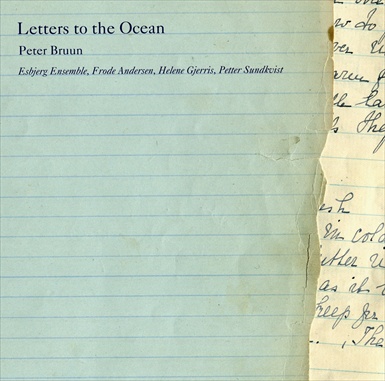 Letters to the Ocean
Peter Bruun
Esbjerg Ensemble, Frode Andersen, Helene Gjerris, Petter Sundkvist
w do
in cold
as it
keep for
, The